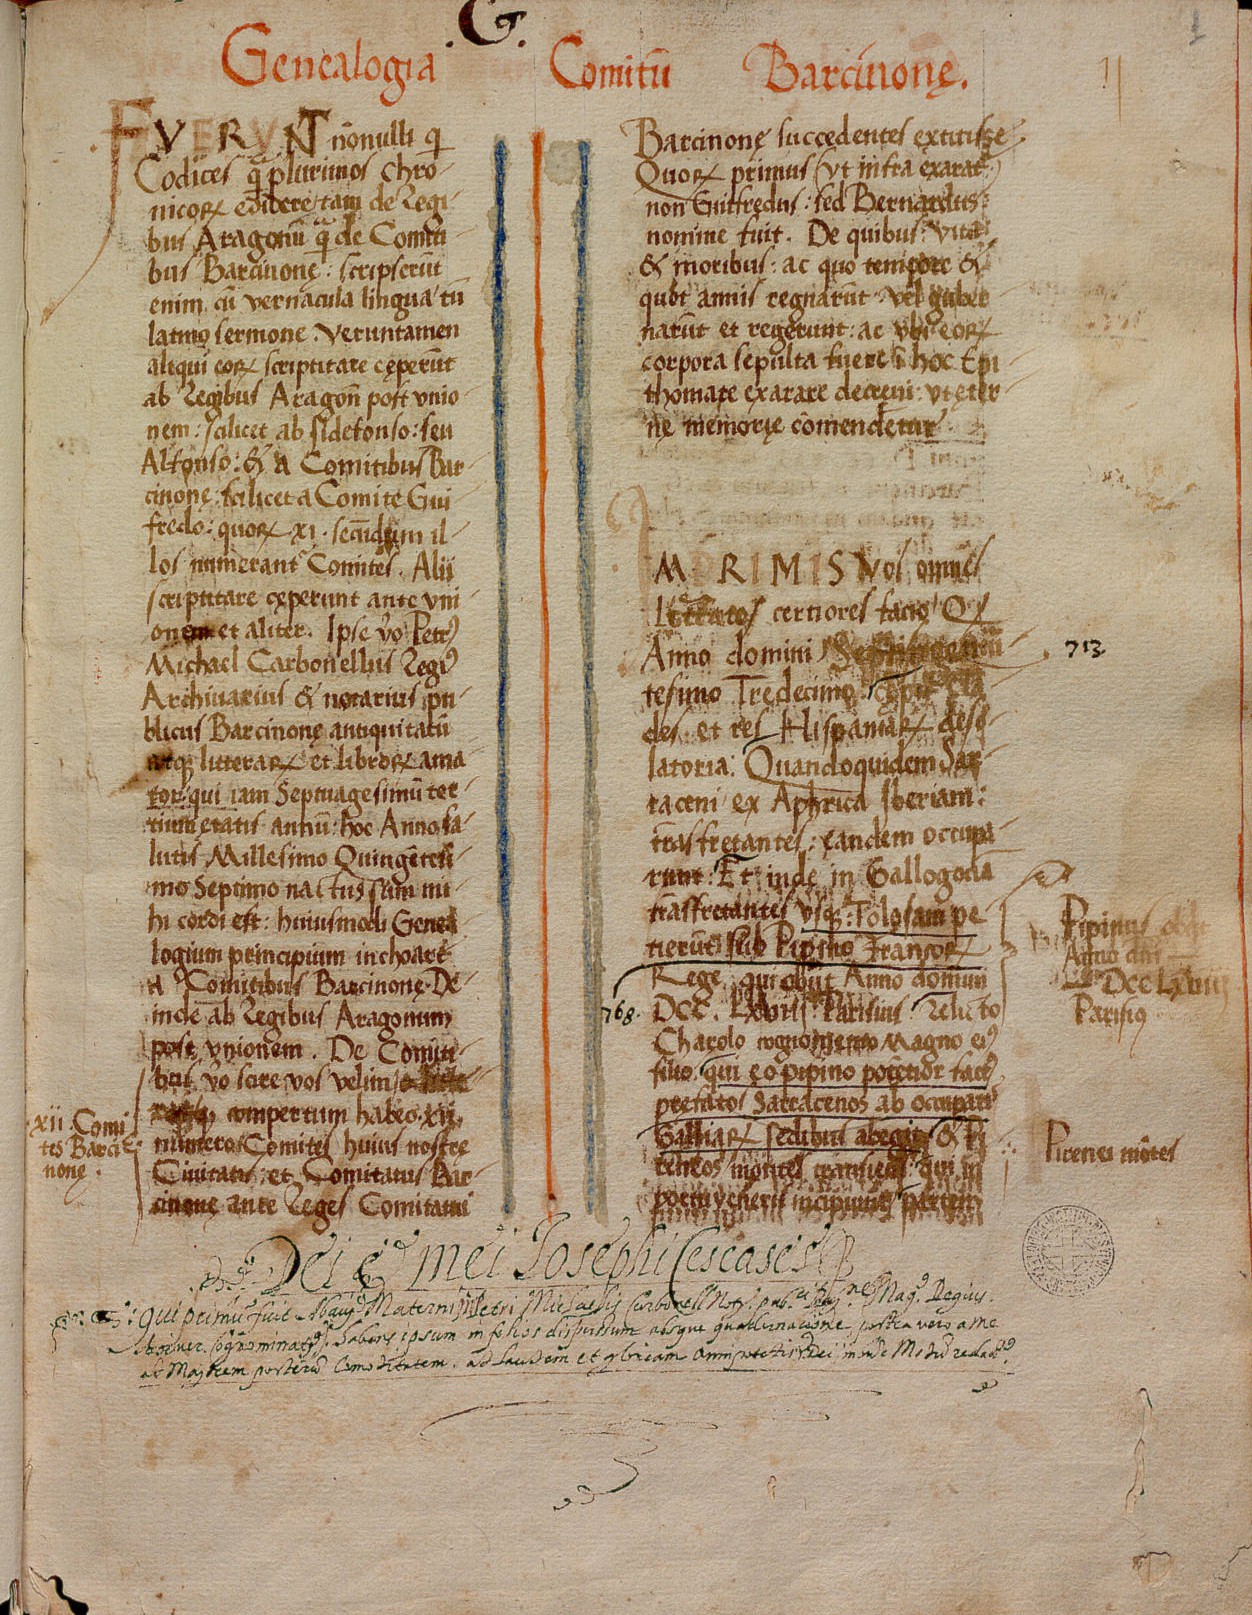 .G.
1
Genealogia Comitū Barcinonę.
FVERVNT nōnulli q̄
Codices q̄ plurimos Chro-
nicoꝝ edidere tam de Regi-
bus Aragonū q̄ de Comiti
bus Barcinonę: scripserūt
enim cū vernacula lingua tū
latino sermone. Veruntamen
aliqui eoꝝ scriptitare cęperūt
ab Regibus Aragon̄ post vnio-
nem: scilicet ab Ildefonso: seu
Alfonso: & a Comitibus Bar-
cinonę: scilicet a Comite Gui
fredo: quoꝝ xi. secūdum il-
los numerant Comites. Alij
scriptitare cęperunt ante vni
onem et aliter. Ipse v̄o Petrꝰ
Michael Carbonellus Regiꝰ
Archiuarius & notarius pu
blicus Barcinonę antiquitatū
atqꝫ litteraꝝ et libroꝝ ama
tor: qui iam Septuagesimū ter-
tium ętatis annū: hoc Anno sa-
lutis Millesimo Quingētesi-
mo Septimo nactus sum mi-
hi cordi est: huiusmodi Genea
logium principium inchoare
a Comitibus Barcinonę. De-
inde ab Regibus Aragonum
post vnionem. De Comiti-
bus v̄o scire vos velim
compertum habeo xij.
numero Comites huius nostrę
Ciuitatis: et Comitatus Bar-
cinonę ante Reges Comitatui
xii. Comi
tes Barci
nonę.
Barcinonę succedentes extitisse
Quoꝝ primus (vt infra exarat)
non Guifredus: sed Bernardus
nomine fuit. De quibus: vita
& moribus: ac quo tempore &
quot annis regnarūt vel guber
narūt et regerunt: ac vbi eoꝝ
corpora sepulta fuere ī hoc Epi
thomate exarare decreui: vt ęter-
nę memorię cōmendetur
IMPRIMIS Vos omnes
litteratos certiores facio Q
Anno domini Septingen
tesimo Tredecimo
des et res Hispaniaꝝ deso
latoria: Quandoquidem Sar-
raceni ex Aphrica Iberiam:
trāsfretantes: eandem occupa
runt: Et inde in Gallogotia
trāsfretantes vsqꝫ Tolosam pe
tierūt: sub Pipino Francoꝝ
Rege qui obijt Anno domini
DCC. LXVIIJ. Parisius: relicto
Charolo cognomento Magno eiꝰ
filio: qui eo Pipino potētior factꝰ
prefatos Sarracenos ab occupatis
Galliaꝝ sedibus abegit: & Pi
reneos montes transiens: qui in
portu veneris incipiunt partem
713
768.
Pipinus obijt
Anno dn̄i
DCCLXVIIJ
Parisiꝰ
Pirenei mōtes
Dei & mei Josephi Cescases
qui primū fuit Abauj Materni Petri Michaelis Carbonell Noty. pub. Mag. Regius.
habens ipsum in folios dispersum absque quaternacione postea vero a me
ad laudem et gloriam omnipotentis Dei